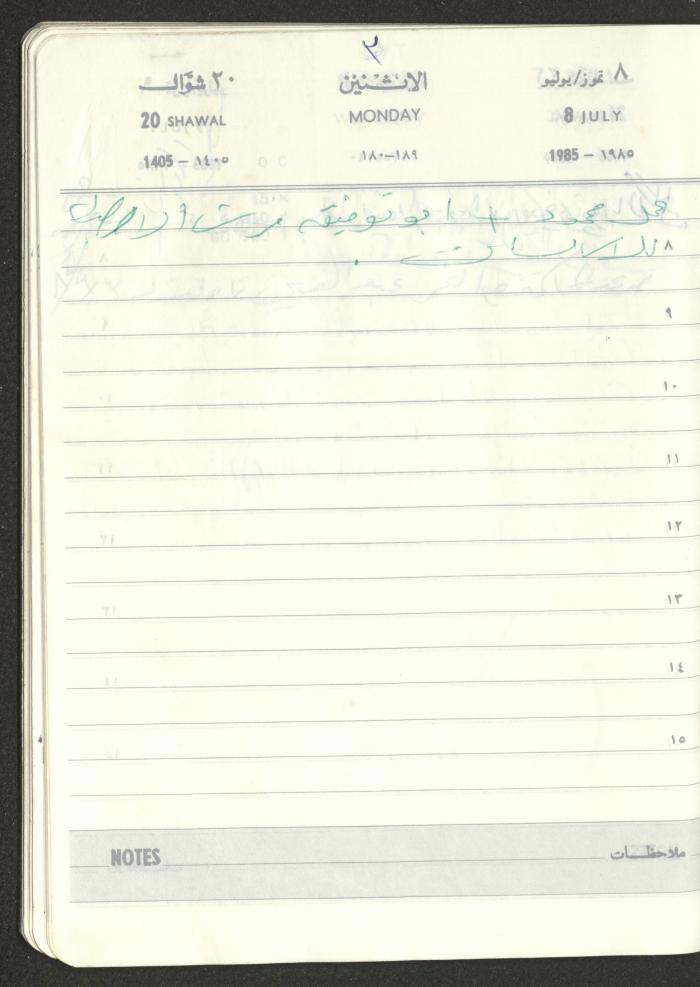 ٣
٢٠ شوّال الاثنين ٨ تموز/يوليو
20 SHAWAL MONDAY 8 JULY
1405 – ١٤٠٥ ١٨٩–١٨٠ 1985 – ١٩٨٥
محمود + ابو توفيق
٨
٩
١٠
١١
١٢
١٣
١٤
١٥
NOTES ملاحظات